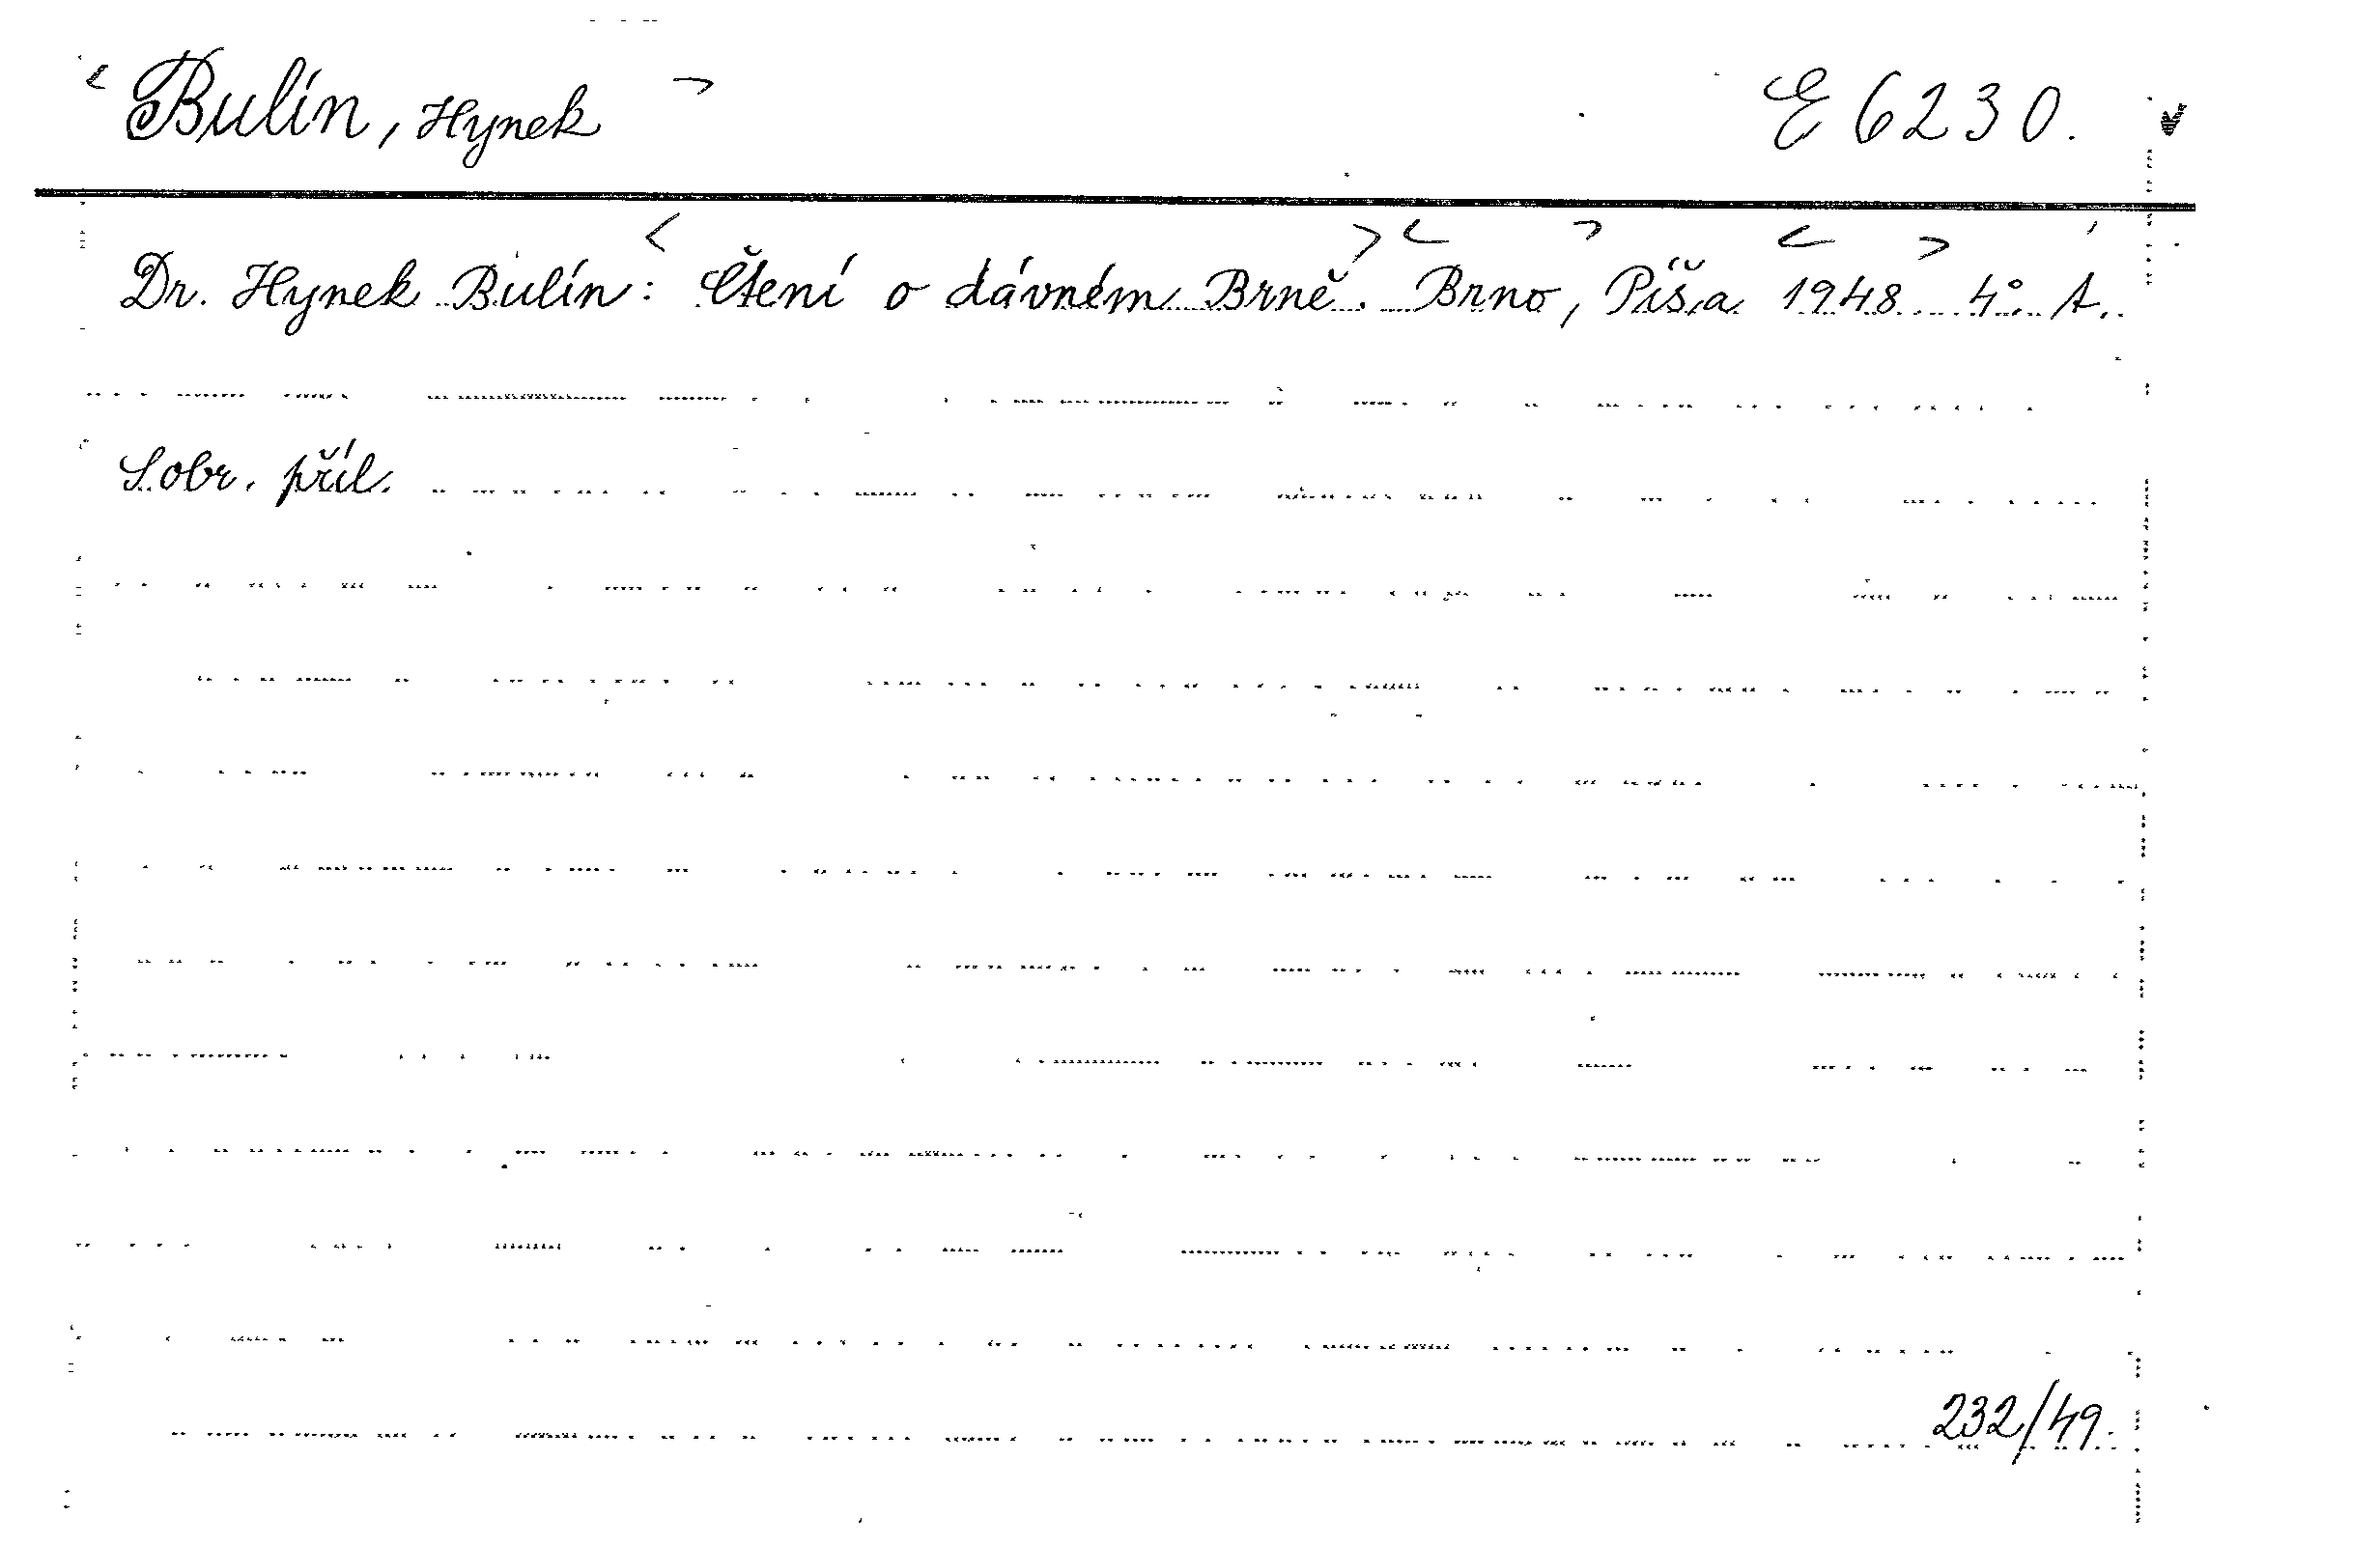 < Bulín, Hynek > E 6230. v
Dr. Hynek Bulín: <Čtení o dávném Brně.> <Brno, > Píša <1948.> 4°. A.
S obr. příl.
232/49.